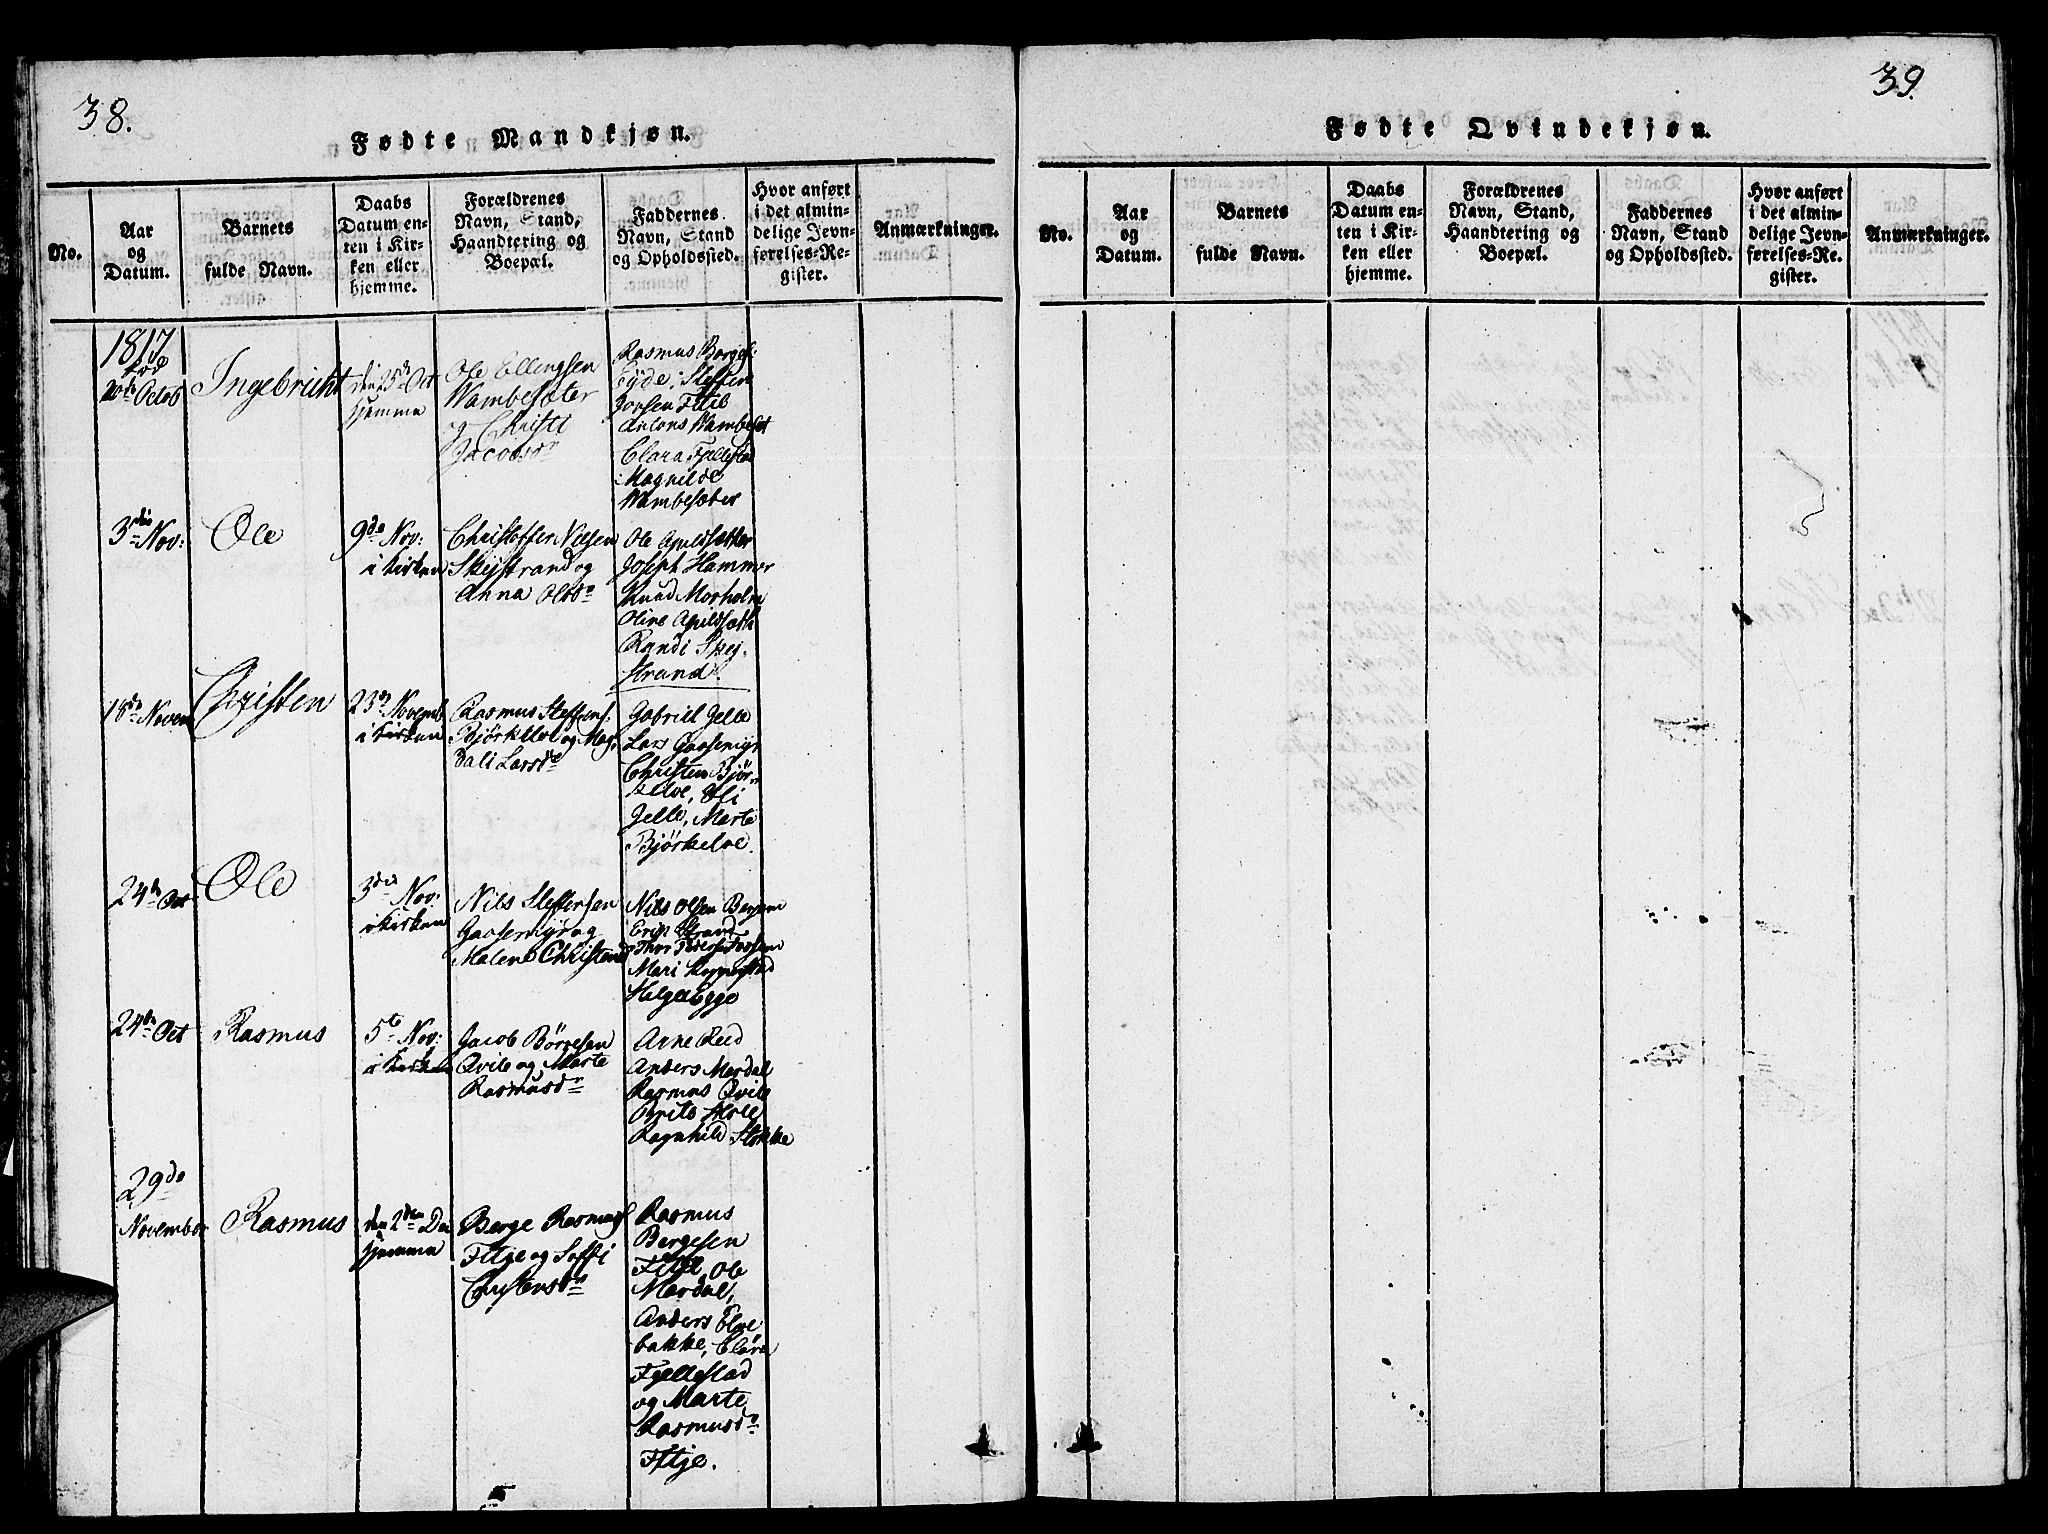 38.
Fødte Mandkjøn.
No.
Aar
og
Datum.
Barnets
fulde Navn.
Daabs
Datum en-
ten i Kir-
ken eller
hjemme.
Forældrenes
Navn, Stand,
Haandtering og
Boepæl.
Faddernes
Navn, Stand
og Opholdssted.
Hvor anført
i det almin-
delige Jevn-
førelses-Re-
gister.
Anmærkninger.
1817
20de Octob
Ingebricht
den 25de Oct
hjemme
Ole Ellingsen
Wambesæter
og Christi
Jacobsdr
Rasmus Børges:
Eyde, Steffen
Jonsen
Wambeset
Clara Fjellestad
Magnilde
Wambesæter
3die Nov:
Ole
9de Nov:
i Kirken
Christoffer Nilsen
Skejstrand og
Anna Olsdr
Ole Apuldsætter
Joseph Hammer
Knud Morholm
Oline Apuldsætt
Randi Skej-
strand
18de Novem
Christen
23de Novemb
i Kirken
Rasmus Steffens:
Bjørkelve og Mar-
dali Larsdr
Gabriel Jelle
Lars Gaasemyr
Christen Bjør-
kelve,
Jelle, Marte
Bjørkelve.
24de Oct
Ole
3die Nov:
i Kirken
Nils Steffensen
Gaasemyr og
Malene Christensd
Nils Olsen Bergem
Erik Strand
Thor Peders Fossem
Mari
Helge Egge
24de Oct
Rasmus
5te Nov:
i Kirken
Jacob Børgesen
Qvile og Marte
Rasmusdr
Arne Reed
Anders Mardal
Rasmus Qvile
Brite Skole
Ragnhild Stokke
29de
November
Rasmus
den 2den Dec
hjemme
Berge Rasmuss
Fitje og Soffi
Christensdr
Rasmus
Bergesen
Fitje, Ole
Mardal,
Anders Elve
bakke, Clara
Fjellestad
og Marte
Rasmusdr
Fitje.
39.
Fødte Qvindekjøn.
No.
Aar
og
Datum.
Barnets
fulde Navn.
Daabs
Datum en-
ten i Kir-
ken eller
hjemme.
Forældrenes
Navn, Stand,
Haandtering og
Boepæl.
Faddernes
Navn, Stand
og Opholdssted.
Hvor anført
i det almin-
delige Jevn-
førelses-Re-
gister.
Anmærkninger.